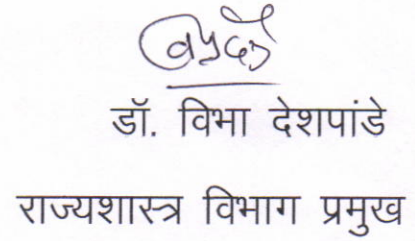 डॉ. विभा देशपांडे
राज्यशास्त्र विभाग प्रमुख